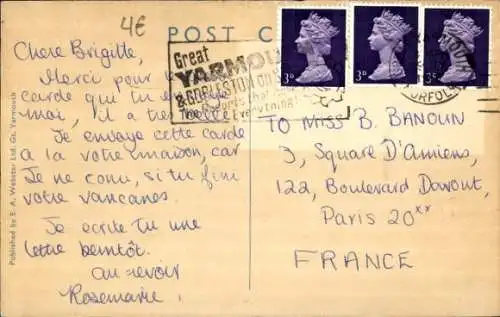 4€
POST C
Great
YARMOU
& GORLESTON ON S
The Resorts that
Everything!
3D
3D
3D
ORFOL
Chere Brigitte,
Merci pour
carde qui tu
moi, il a tres belle
Je envoye cette carde
a la votre maison, car
Je ne conu, si tu fini
votre vancanes.
Je ecrite tu une
lettre bientôt.
au-revoir
Rosemarie.
TO MISS B. BANOUN
3, Square D'Amiens,
122, Boulevard Davout,
Paris 20xx
FRANCE
Published by E. A. Webster Ltd. Gt. Yarmouth